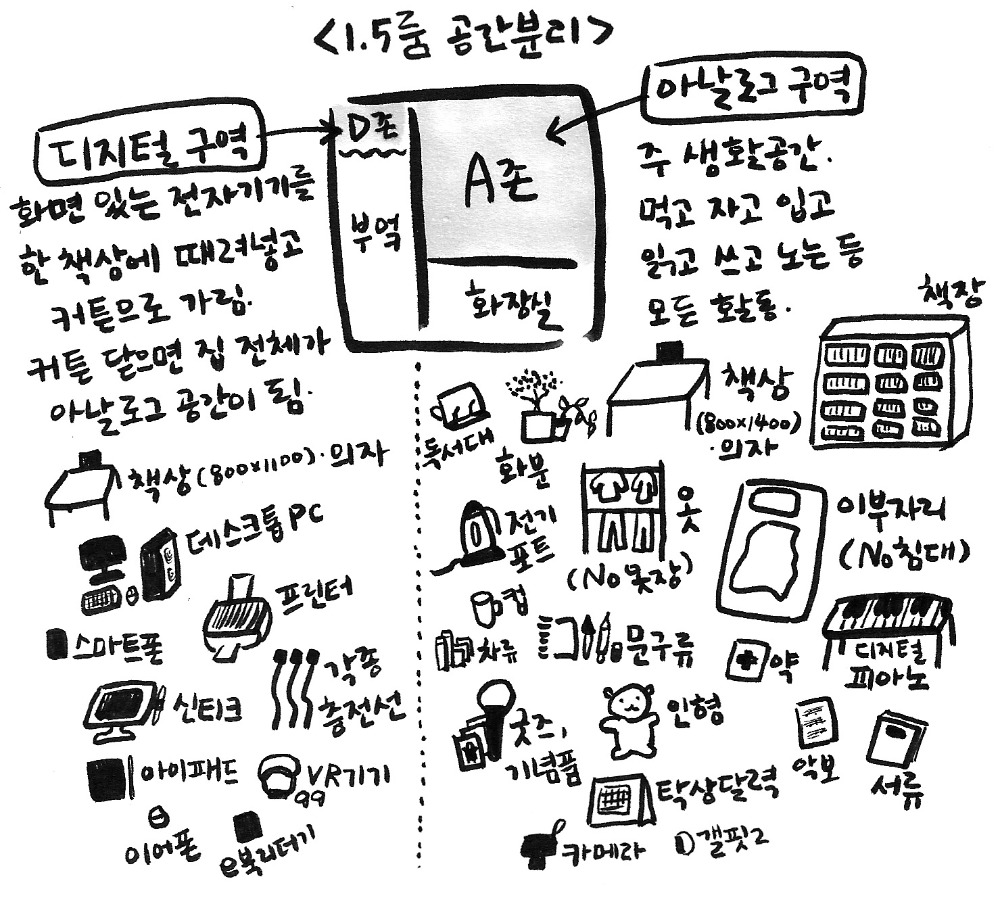 <1.5룸 공간분리>
디지털 구역
화면 있는 전자기기를
한 책상에 때려넣고
커튼으로 가림.
커튼 닫으면 집 전체가
아날로그 공간이 됨.
D존
부엌
A존
화장실
아날로그 구역
주 생활공간.
먹고 자고 입고
읽고 쓰고 노는 등
모든 활동.
책상(800x1100)·의자
데스크톱 PC
프린터
스마트폰
신티크
각종
충전선
아이패드
VR기기
이어폰
e북리더기
독서대
화분
책상
(800x1400)
·의자
책장
전기
포트
옷
(No옷장)
이부자리
(No침대)
컵
차류
문구류
약
디지털
피아노
굿즈,
기념품
인형
악보
서류
탁상달력
카메라
갤핏2